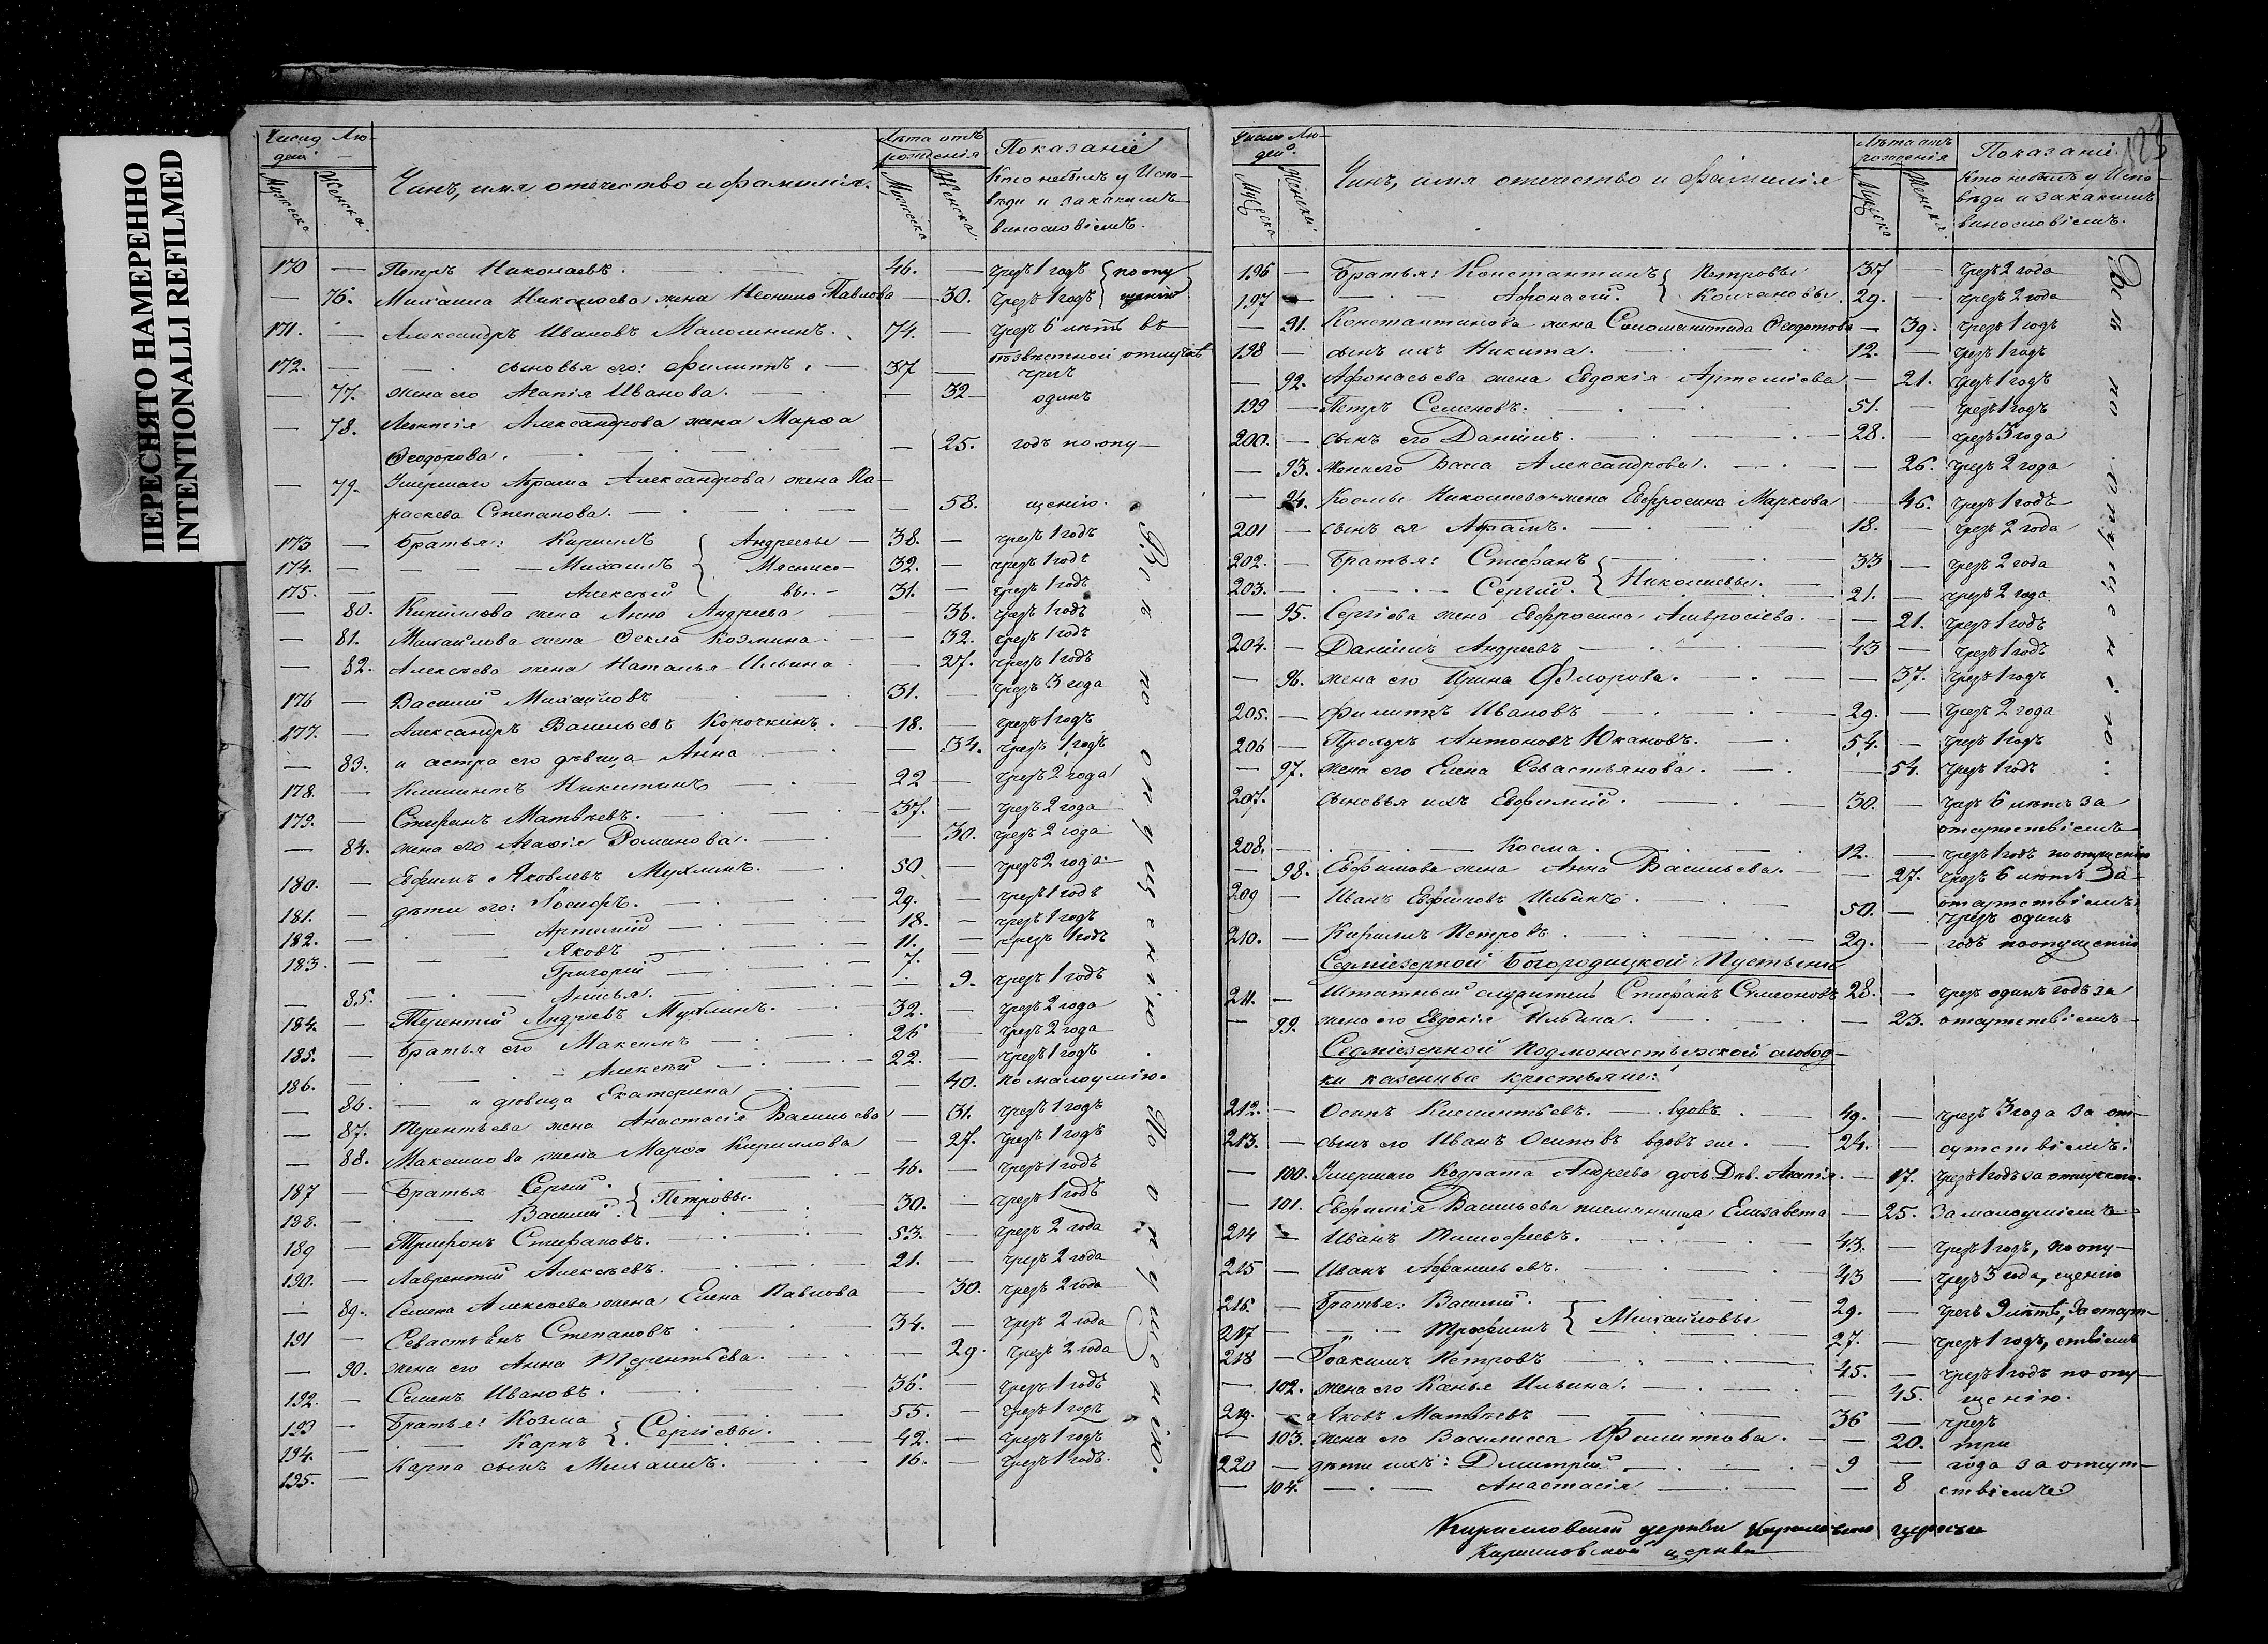 ПЕРЕСНЯТО НАМЕРЕННО
INTENTIONALLI REFILMED
Число Лю-
дей
Мужеска
Женска.
Чинъ, имя отечество и фамилія.
Лѣта отъ
рожденія
Мужеска
Женска
Показаніе
Кто небылъ у Испо-
вѣди и закакимъ
винословіемъ.
170 — Петръ Николаевъ. 46. — чрезъ 1 годъ } по опу
— 76. Михаила Николаева жена Неонила Павлова — 30. чрезъ 1 годъ } щенію
171. — Александръ Ивановъ 74. — чрезъ 6 лѣтъ въ
безвѣстной отлучкѣ
172. — сыновья его: Филиппъ. — 37 — чрезъ
— 77. жена его Агапія Иванова. — 32 — одинъ
— 78. Леонтія Александрова жена Марѳа
Ѳеодорова. — 25. годъ по опу—
— 79. Умершаго Абрама Александрова жена Па-
раскева Степанова. — 58. щенію.
173 — Братья: Кириллъ { Андреевы — 38. — чрезъ 1 годъ
174. — Михаилъ { Мяснико- 32. — чрезъ 1 годъ
175. — Алексѣй { вы. — 31. — чрезъ 1 годъ
— 80. Кириллова жена Анна Андреева — 36. чрезъ 1 годъ
— 81. Михайлова жена Ѳекла Козмина. — 32. чрезъ 1 годъ
— 82. Алексѣева жена Наталья Ильина — 27. чрезъ 1 годъ
176 — Василій Михайловъ 31. — чрезъ 3 года
177. — Александръ Васильевъ Корочкинъ. — 18. — чрезъ 1 годъ
— 83. и сестра его дѣвица Анна — 34. чрезъ 1 годъ
178. — Климентъ Никитинъ 22 — чрезъ 2 года
179. — Стефанъ Матвѣевъ. 37. — чрезъ 2 года
— 84. жена его Агаѳія Романова. — 30. чрезъ 2 года
180. — Евфимъ Яковлевъ Мухлинъ. 50 — чрезъ 2 года
181. — дѣти его: Іосифъ. 29. — чрезъ 1 годъ
182. — Артемій 18. — чрезъ 1 годъ
183. — Яковъ 11. — чрезъ 1 годъ
Григорій 7.
— 85. Анисья. — 9. чрезъ 1 годъ
184. — Терентій Андреевъ Мухлинъ. 32. — чрезъ 2 года
185. — Братья его Максимъ 26 — чрезъ 2 года
186. — Алексѣй 22. — чрезъ 1 годъ
— 86. — и дѣвица Екатерина — 40. по малоумію.
— 87. Терентьева жена Анастасія Васильева — 31. чрезъ 1 годъ
— 88. Максимова жена Марѳа Кириллова — 27. чрезъ 1 годъ
187 — Братья Сергій { Петровы. 46. — чрезъ 1 годъ
188. — Василій { 30. — чрезъ 1 годъ
189 — Трифонъ Стефановъ. 53. — чрезъ 2 года
190. — Лаврентій Алексѣевъ. 21. — чрезъ 2 года
— 89. Семена Алексѣева жена Елена Павлова — 30. чрезъ 2 года
191 — Севастьянъ Степановъ 34. — чрезъ 2 года
— 90. жена его Анна Терентьева. — 29. чрезъ 2 года
192. — Семенъ Ивановъ. 36. — чрезъ 1 годъ
193 — Братья: Козма { Сергіевы. 55. — чрезъ 1 годъ
194. — Карпъ { 42. — чрезъ 1 годъ
195. — Карпа сынъ Михаилъ. 16. — чрезъ 1 годъ.
Всѣ по опущенію. По опущенію.
123
Число Лю-
дей.
Мужеска
Женска.
Чинъ, имя отечество и фамилія
Лѣта отъ
рожденія
Мужеска
Женска.
Показаніе
Кто небылъ у Испо-
вѣди и закакимъ
винословіемъ.
196 — Братья: Константинъ { Петровы 37 — чрезъ 2 года
197 — Афонасій. { Колчановы. 29. — чрезъ 2 года
— 91. Константинова жена Соломонида Ѳеодотова — 39. чрезъ 1 годъ
198 — сынъ ихъ Никита. 12. — чрезъ 1 годъ
— 92. Афонасьева жена Евдокія Артеміева — 21. чрезъ 1 годъ
199 — Петръ Семеновъ. 51. — чрезъ 1 годъ
200. — сынъ его Даніилъ. 28. — чрезъ 3 года
— 93. жена его Васса Александрова. — 26. чрезъ 2 года
— 94. Космы Николаева жена Евфросина Маркова — 46. чрезъ 1 годъ
201 — сынъ ея Абрамъ. 18. — чрезъ 2 года
202. — Братья: Стефанъ { Николаевы. 33 — чрезъ 2 года
203. — Сергій. { 21. — чрезъ 2 года
— 95. Сергіева жена Евфросина Амвросіева. — 21. чрезъ 1 годъ
204. — Даніилъ Андреевъ 43 — чрезъ 1 годъ
— 96. жена его Ирина Флорова. — 37. чрезъ 1 годъ
205. — Филиппъ Ивановъ 29. — чрезъ 2 года
206 — Прохоръ Антоновъ Юкановъ. 54. — чрезъ 1 годъ
— 97. жена его Елена Севастьянова. — 54. чрезъ 1 годъ
207. сыновья ихъ Евфимій. 30. — чрезъ 6 лѣтъ за
отсутствіемъ
208. — Косма. 12. — чрезъ 1 годъ по опущенію
— 98. Евфимова жена Анна Васильева. — 27. чрезъ 6 лѣтъ за-
отсутствіемъ
209 — Иванъ Евфимовъ Ильинъ. 50. — чрезъ одинъ
210. — Кириллъ Петровъ. 29. — годъ по опущенію
Седміезерной Богородицкой Пустыни
211. — Штатный служитель Стефанъ Симеоновъ 28. — чрезъ одинъ годъ за
— 99. жена его Евдокія Ильина. — 23. отсутствіемъ
Седміезерной Подмонастырской слобод-
ки казенные крестьяне:
212. — Осипъ Климентьевъ. — вдовъ. 49. — чрезъ 3 года за от-
213. — сынъ его Иванъ Осиповъ вдовъ же. 24. — сутствіемъ.
— 100. Умершаго Кодрата Андреева дочь Дѣв. Агапія. — 17. чрезъ 1 годъ за отлучкою.
— 101. Евфимія Васильева племянница Елизавета — 25. за малоуміемъ
214 — Иванъ Тимофеевъ. 43. — чрезъ 1 годъ, по опу—
215 — Иванъ Афанасьевъ. 43 — чрезъ 3 года, щенію
216. — Братья: Василій. { Михайловы 29. — чрезъ 9 лѣтъ, за отсут—
217 — Трофимъ { 27. — чрезъ 1 годъ, ствіемъ
218 — Іоакимъ Петровъ 45. — чрезъ 1 годъ по опу—
— 102. жена его Ксенья Ильина. — 45. щенію.
219. — Яковъ Матвѣевъ 36 — чрезъ
— 103. жена его Василисса Филиппова. — 20. три
220 — дѣти ихъ: Дмитрій. 9 — года за отсут—
— 104. Анастасія — 8 ствіемъ
Всѣ по опущенію.
Кирилловской церкви церкви
Кирилловской церкви